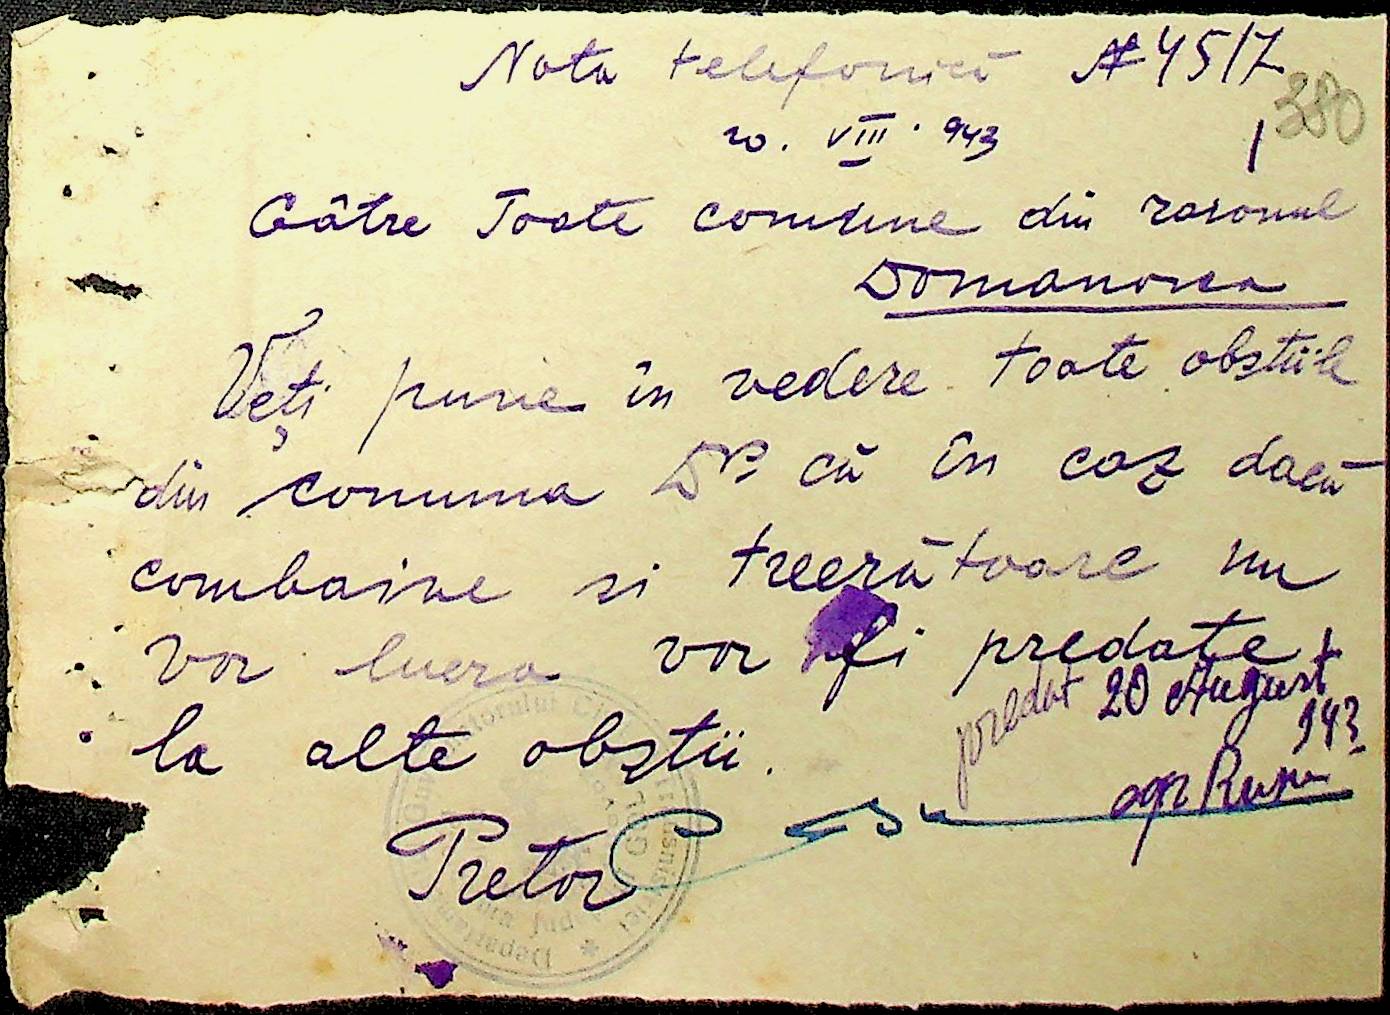 Nota telefonică № 4517
380
20. VIII. 943
Către Toate comune din raionul
Domaniovca
Veți pune în vedere toate obștiile
din comuna DV că în caz dacă
combaine si treerătoare nu
vor lucra vor fi predate
la alte obștii.
predat 20 August
943
agr Rusu
Pretor